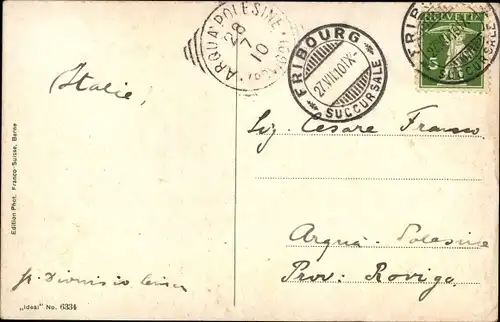 ARQUA' POLESINE
28
7
10
(ROVIGO)
FRIBOURG
27.VII.10.IX-
SUCCURSALE
HELVETIA
5
FRIB
SUCCURSALE
Italie,
Sig. Cesare Franco
Arquà - Polesine
Prov: Rovigo
Edition Phot. Franco-Suisse, Berne
p. Dionisio
„Ideal" No. 6334